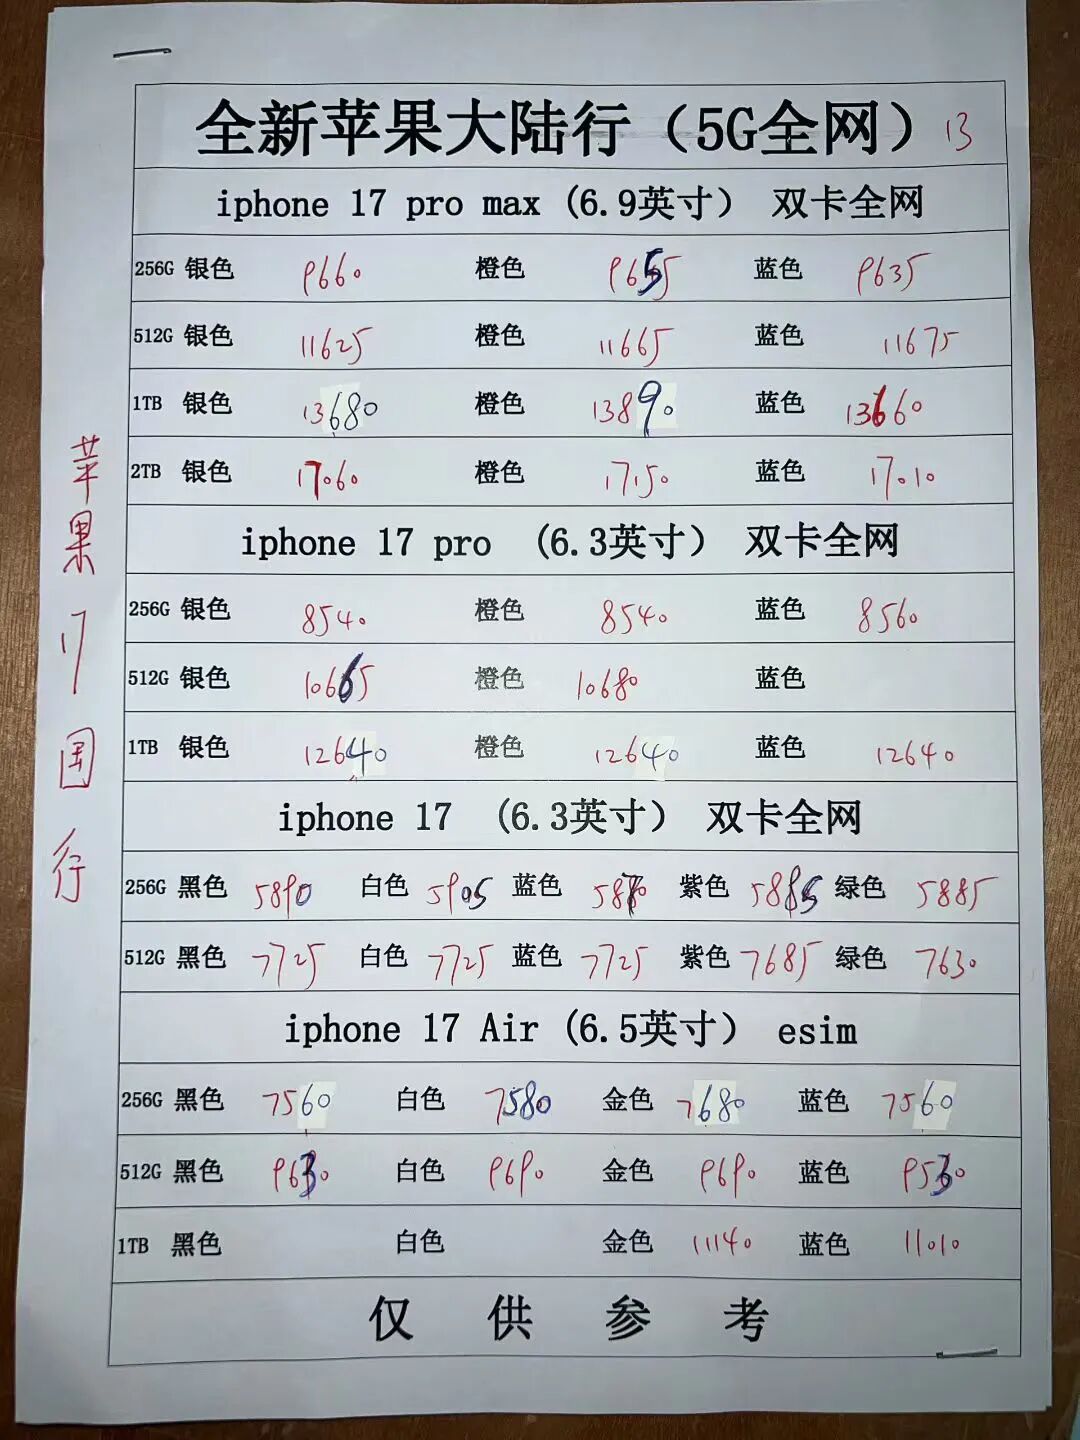 全新苹果大陆行（5G全网） 13
iphone 17 pro max (6.9英寸） 双卡全网
256G 银色 9660 橙色 9655 蓝色 9635
512G 银色 11625 橙色 11665 蓝色 11675
1TB 银色 13680 橙色 13890 蓝色 13660
2TB 银色 17060 橙色 17150 蓝色 17010
iphone 17 pro (6.3英寸） 双卡全网
256G 银色 8540 橙色 8540 蓝色 8560
512G 银色 10665 橙色 10680 蓝色
1TB 银色 12640 橙色 12640 蓝色 12640
iphone 17 (6.3英寸） 双卡全网
256G 黑色 5890 白色 5905 蓝色 5870 紫色 5885 绿色 5885
512G 黑色 7725 白色 7725 蓝色 7725 紫色 7685 绿色 7630
iphone 17 Air (6.5英寸） esim
256G 黑色 7560 白色 7580 金色 7680 蓝色 7560
512G 黑色 9630 白色 9690 金色 9690 蓝色 9530
1TB 黑色 白色 金色 11140 蓝色 11010
仅供参考
苹果17国行